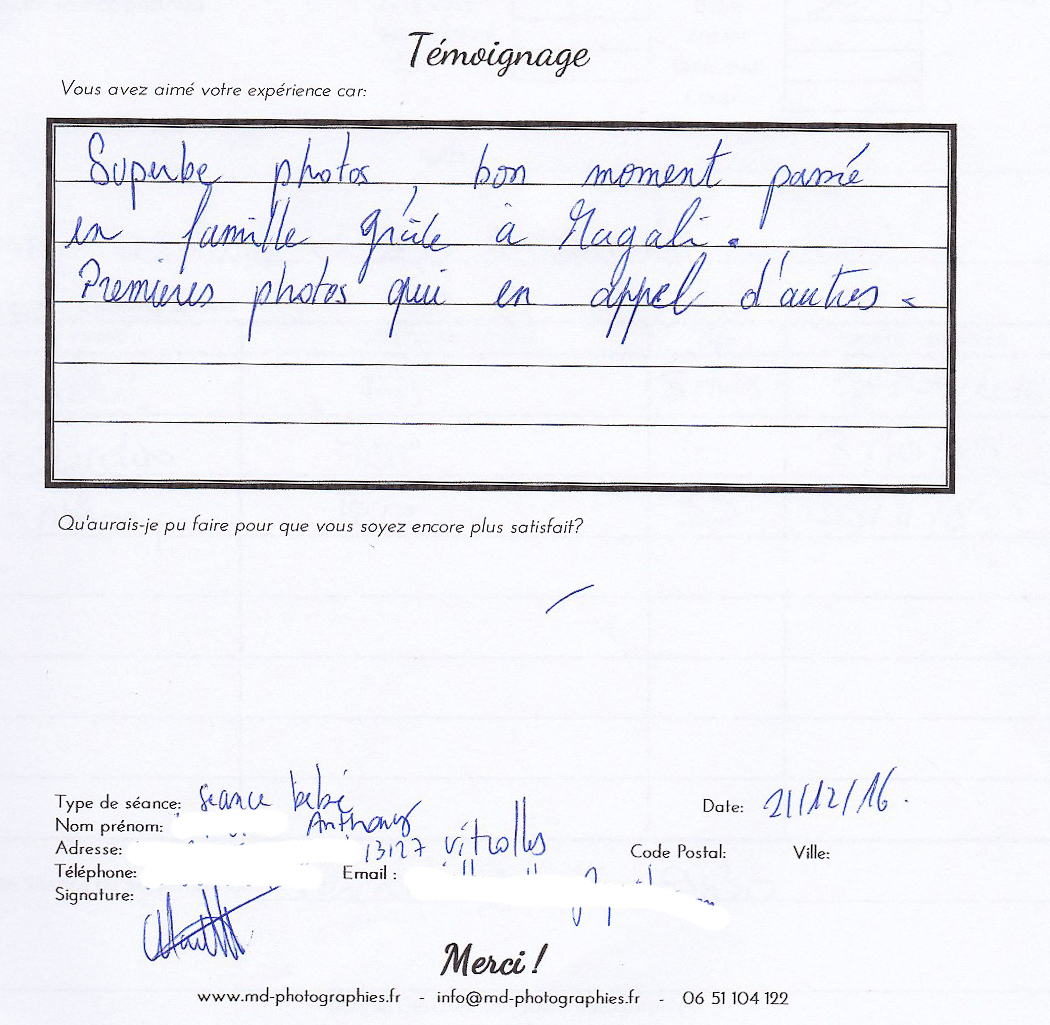 Témoignage
Vous avez aimé votre expérience car:
Superbe photos, bon moment passé
en famille grâce à Magali.
Premières photos qui en appel d'autres.
Qu'aurais-je pu faire pour que vous soyez encore plus satisfait?
Type de séance: séance bébé
Date: 21/12/16.
Nom prénom: Anthony
Adresse: 13127 vitrolles
Code Postal: Ville:
Téléphone: Email :
Signature:
Merci !
www.md-photographies.fr - info@md-photographies.fr - 06 51 104 122